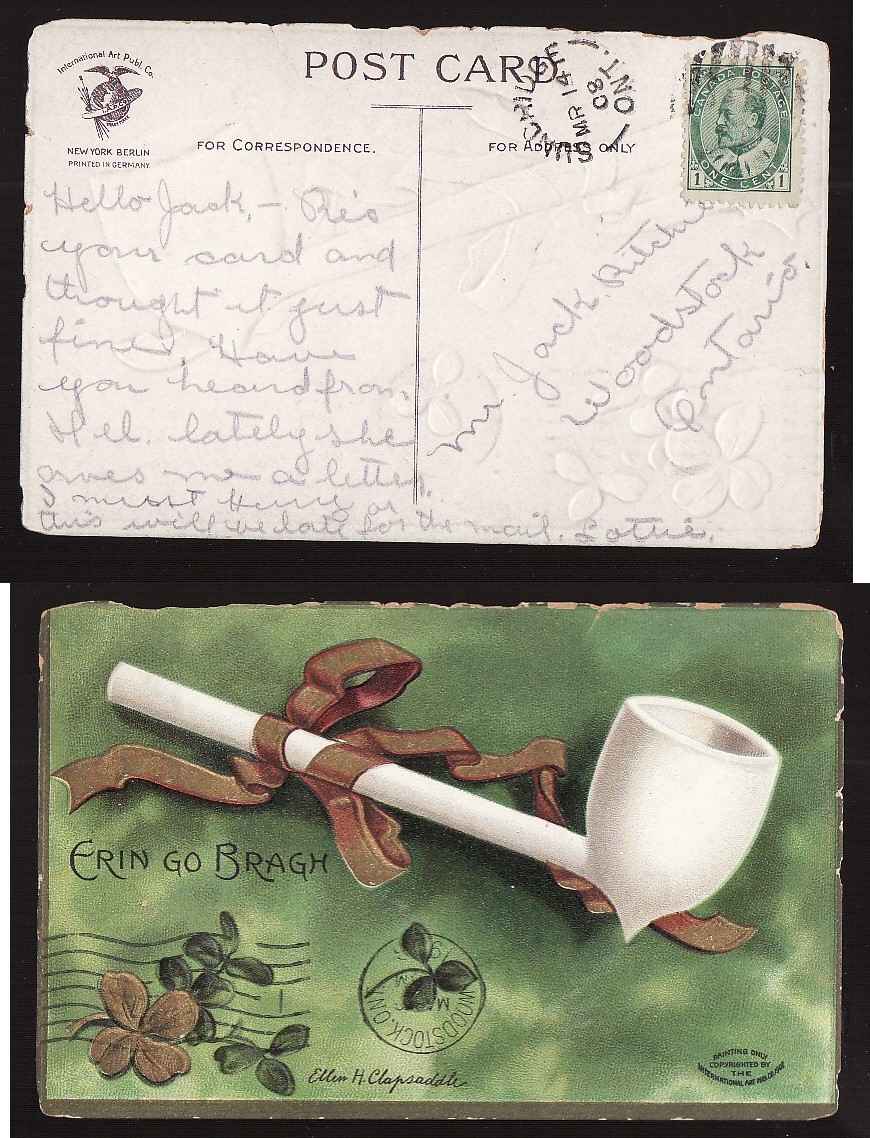 International Art Publ. Co.
POST CARD
NEW YORK BERLIN
PRINTED IN GERMANY
FOR CORRESPONDENCE.
FOR ADDRESS ONLY
MR 14
08
ONT.
CANADA POSTAGE
ONE CENT
1 1
Hello Jack, - Re's
your card and
thought it just
fine. Have
you heard from
Hel. lately she
owes me a letter.
I must Hurry or
this will be late for the mail. Lottie.
Mr. Jack Ritchie
Woodstock
Ontario.
ERIN GO BRAGH
WOODSTOCK, ONT
Ellen H. Clapsaddle
PAINTING ONLY
COPYRIGHTED BY
THE
INTERNATIONAL ART PUBL. CO.